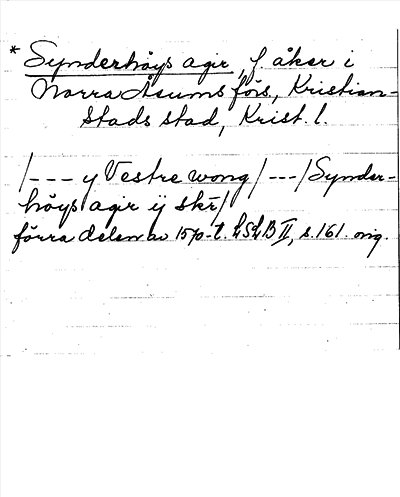 * Synderhöys agir, f. åker i
Norra Åsums förs, Kristian-
stads stad, Krist. l.
/--- y Vestre wong/---/Synder-
höys agir ij skr/
förra delen av 1570-t. LSLB II, s. 161. orig.